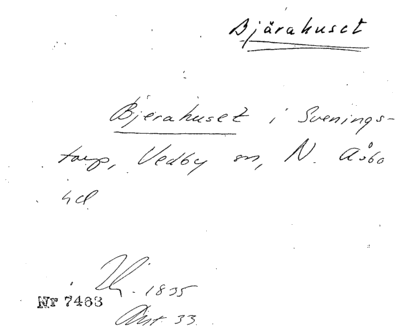 Bjärahuset
Bjerahuset i Svenings-
torp, Vedby sn, N. Åsbo
hd
1835
Nr 7463
33